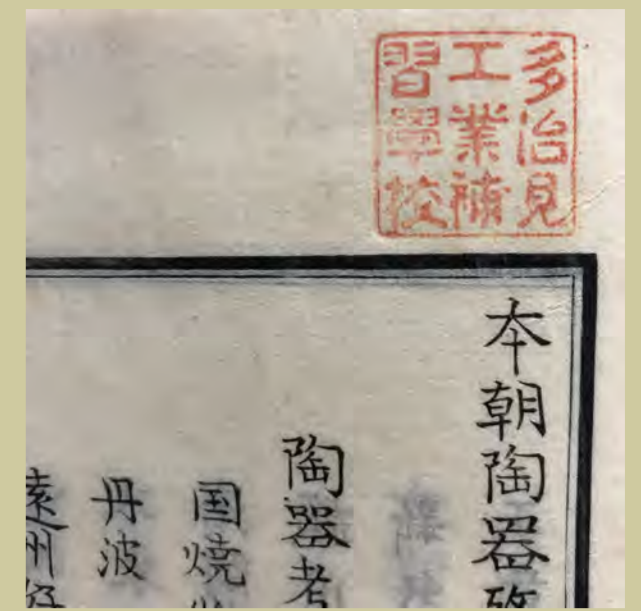 多治見
工業補
習學校
本朝陶器攷
陶器考
国焼
丹波
遠州